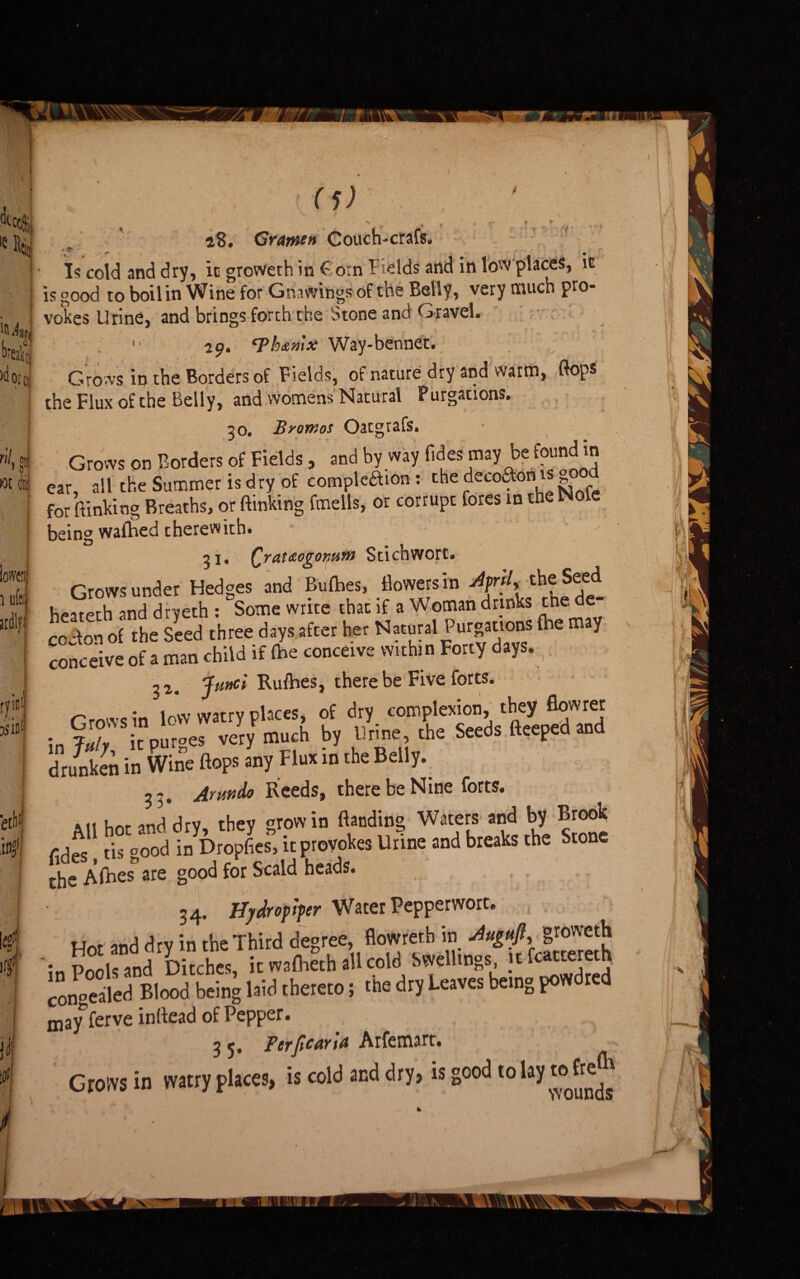 (5)
28. Gramen Couch-crafs.
Is cold and dry, it groweth in Corn Fields and in low places, it
is good to boil in Wine for Gnawings of the Belly, very much pro-
vokes Urine, and brings forth the Stone and Gravel.
29. Phænix Way-bennet.
Grows in the Borders of Fields, of nature dry and warm, ſtops
the Flux of the Belly, and womens Natural Purgations.
30. Bromos Oatgraſs.
Grows on Borders of Fields, and by way ſides may be found in
ear, all the Summer is dry of complection: the decocton is good
for ſtinking Breaths, or ſtinking ſmells, or corrupt ſores in the Noſe
being waſhed therewith.
31. Cratæogonum Stichwort.
Grows under Hedges and Buſhes, flowers in April, the Seed
heateth and dryeth: Some write that if a Woman drinks the de-
cocton of the Seed three days after her Natural Purgations ſhe may
conceive of a man child if ſhe conceive within Forty days.
32. Junci Ruſhes, there be Five ſorts.
Grows in low watry places, of dry complexion, they flowrer
in July, it purges very much by Urine, the Seeds ſteeped and
drunken in Wine ſtops any Flux in the Belly.
33. Arundo Reeds, there be Nine ſorts.
All hot and dry, they grow in ſtanding Waters and by Brook
ſides, tis good in Dropſies, it provokes Urine and breaks the Stone
the Aſhes are good for Scald heads.
34. Hydropiper Water Pepperwort.
Hot and dry in the Third degree, flowreth in Auguſt, groweth
in Pools and Ditches, it waſheth all cold Swellings, it ſcattereth
congealed Blood being laid thereto; the dry Leaves being powdred
may ſerve inſtead of Pepper.
35. Perſicaria Arſemart.
Grows in watry places, is cold and dry, is good to lay to freſh
wounds